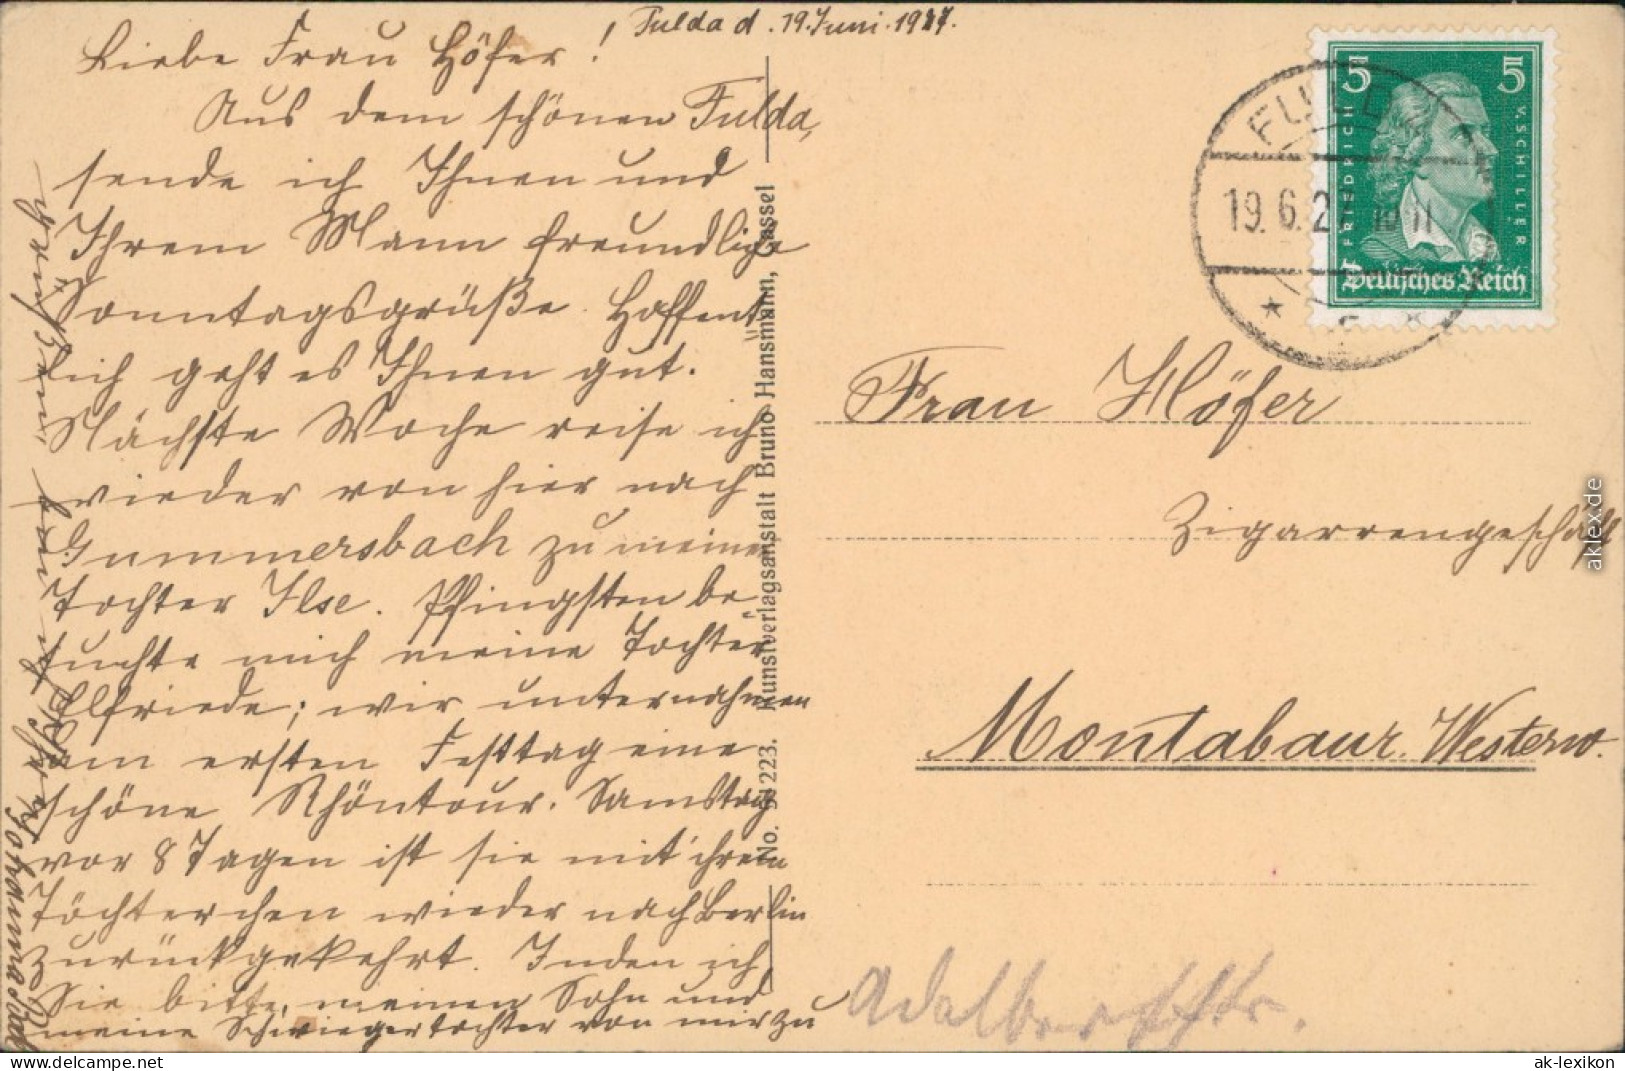 Fulda d. 19. Juni. 1927.
Liebe Frau Höfer!
Aus dem schönen Fulda,
sende ich Ihnen und
Ihrem Mann freundliche
Sonntagsgrüße. Hoffent
lich geht es Ihnen gut.
Nächste Woche reise ich
wieder von hier nach
Gummersbach zu meiner
Tochter Ilse. Pfingsten be-
suchte mich meine Tochter
Elfriede; wir unternahmen
am ersten Festtag eine
schöne Rhöntour. Samstag
vor 8 Tagen ist sie mit ihrem
Töchterchen wieder nach Berlin
zurückgekehrt. Indem ich
Sie bitte, meinen Sohn und
meine Schwiegertochter von mir zu
grüßen, bin ich Ihre
Johanna
No. 9223. Kunstverlagsanstalt Bruno Hansmann, Cassel
5 5
FRIEDRICH V. SCHILLER
Deutsches Reich
FULDA
19. 6. 27 10-11
Frau Höfer
Zigarrengeschäft
Montabaur. Westerw.
Adalbertstr.
aklex.de
www.ansichtskarten-lexikon.de
ak-lexikon